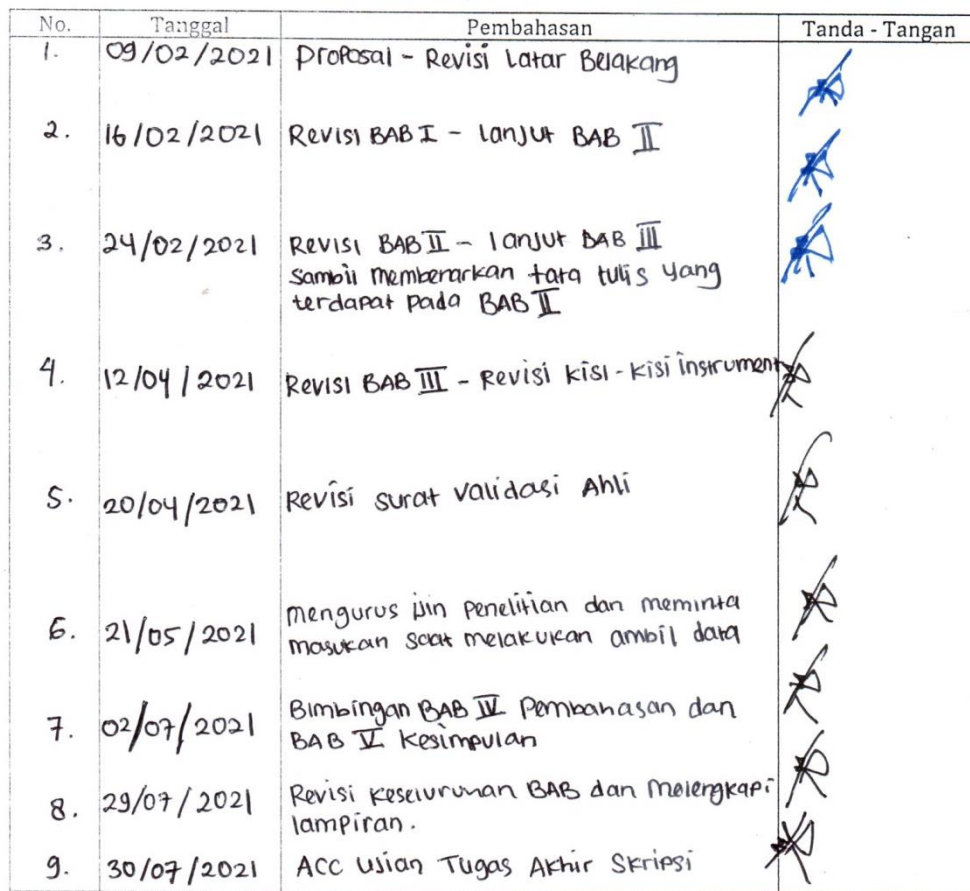 No. Tanggal Pembahasan Tanda - Tangan
1. 09/02/2021 Proposal - Revisi Latar Belakang
2. 16/02/2021 Revisi BAB I - lanjut BAB II
3. 24/02/2021 Revisi BAB II - lanjut BAB III
sambil memberarkan tata tulis yang
terdapat pada BAB II
4. 12/04/2021 Revisi BAB III - Revisi kisi-kisi instrument
5. 20/04/2021 Revisi surat Validasi Ahli
6. 21/05/2021 mengurus ijin penelitian dan meminta
masukan saat melakukan ambil data
7. 02/07/2021 Bimbingan BAB IV Pembahasan dan
BAB V Kesimpulan
8. 29/07/2021 Revisi keseluruhan BAB dan melengkapi
lampiran.
9. 30/07/2021 ACC Ujian Tugas Akhir Skripsi